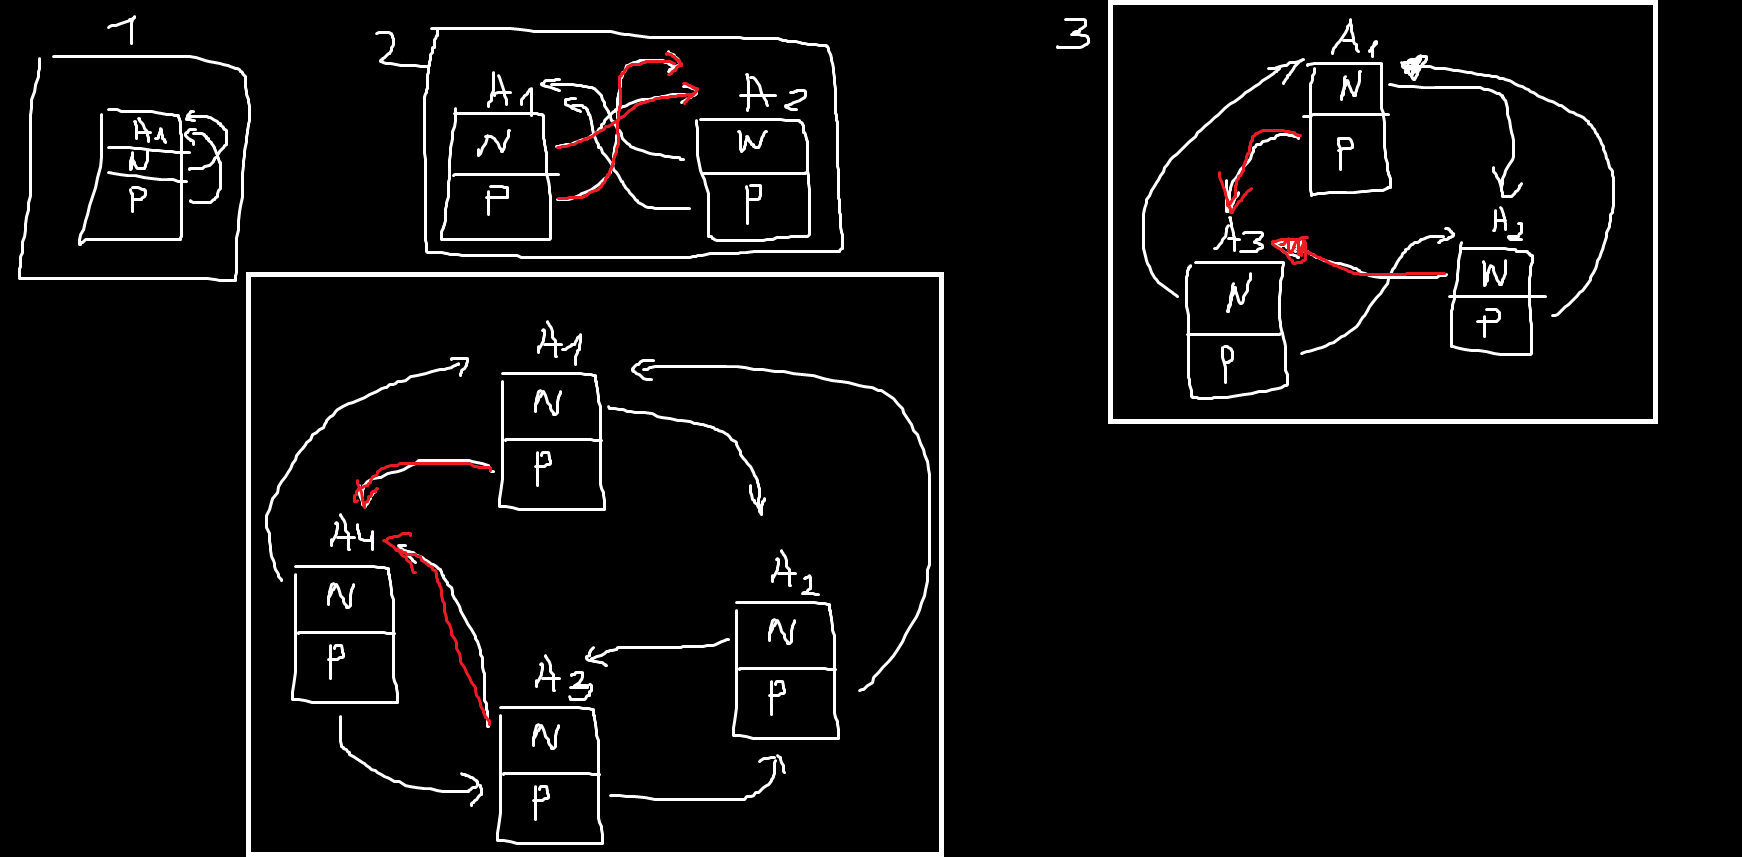 1
A1
N
P
2
A1
N
P
A2
W
P
3
A1
N
P
A3
N
P
A2
W
P
A1
N
P
A4
N
P
A2
N
P
A3
N
P